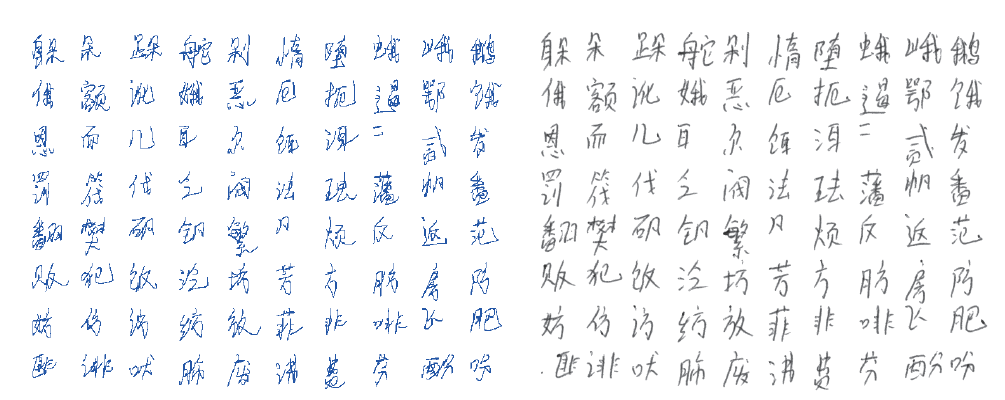 躲朵跺舵剁惰堕蛾峨鹅 躲朵跺舵剁惰堕蛾峨鹅
俄额讹娥恶厄扼遏鄂饿 俄额讹娥恶厄扼遏鄂饿
恩而儿耳尔饵洱二贰发 恩而儿耳尔饵洱二贰发
罚筏伐乏阀法珐藩帆番 罚筏伐乏阀法珐藩帆番
翻樊矾钒繁凡烦反返范 翻樊矾钒繁凡烦反返范
贩犯饭泛坊芳方肪房防 贩犯饭泛坊芳方肪房防
妨仿访纺放菲非啡飞肥 妨仿访纺放菲非啡飞肥
匪诽吠肺废沸费芬酚吩 匪诽吠肺废沸费芬酚吩